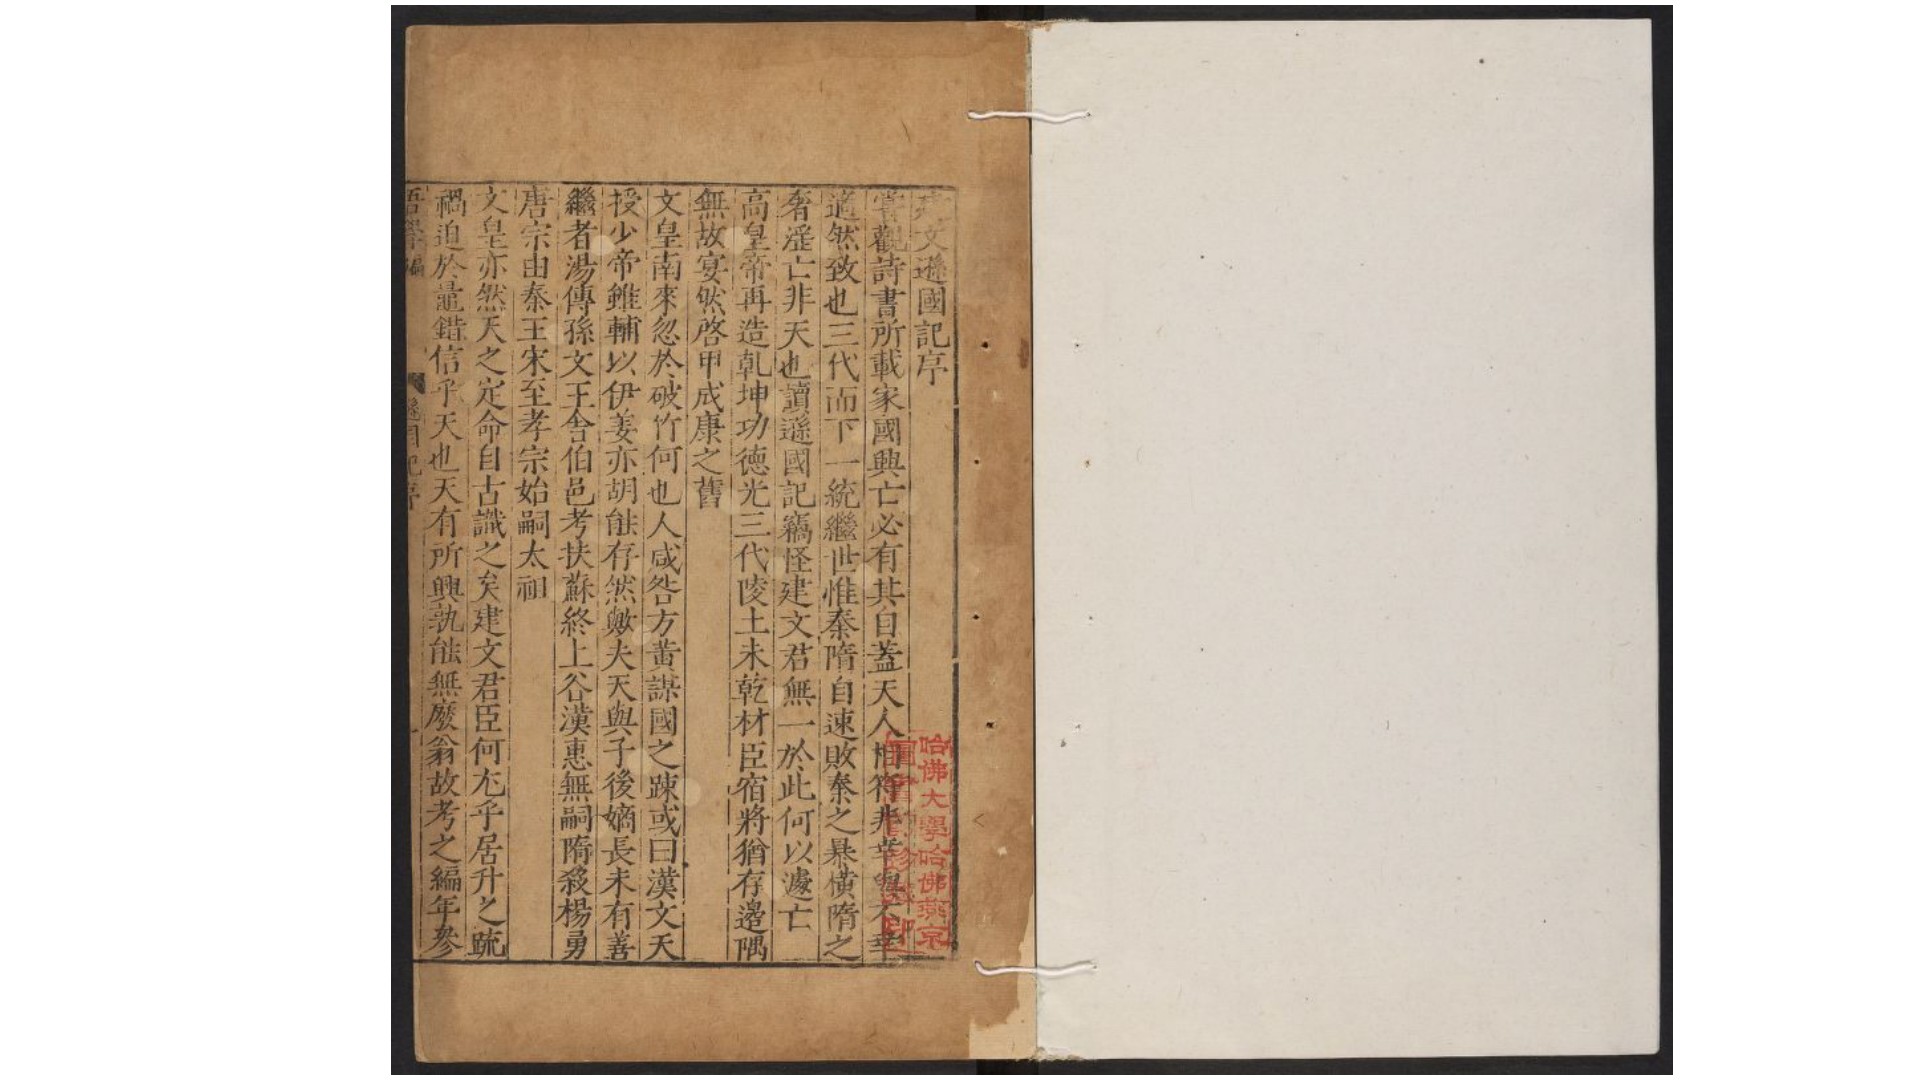 建文遜國記序
嘗觀詩書所載家國興亡必有其自蓋天人相符非幸與不幸
適然致也三代而下一統繼世惟秦隋自速敗秦之暴橫隋之
奢滛亡非天也讀遜國記竊怪建文君無一於此何以遽亡
高皇帝再造乹坤功德光三代陵土未乾材臣宿將猶存邊隅
無故宴然啓甲成康之舊
文皇南來忽於破竹何也人咸咎方黃謀國之踈或曰漢文天
授少帝雖輔以伊姜亦胡能存然歟夫天與子後嫡長未有善
繼者湯傳孫文王舎伯邑考扶蘇終上谷漢惠無嗣隋殺楊勇
唐宗由秦王宋至孝宗始嗣太祖
文皇亦然天之定命自古識之矣建文君臣何尤乎居升之䟽
禍迫於鼂錯信乎天也天有所興孰能無廢翁故考之編年參
吾學編
遜國記序
哈佛大學哈佛燕京
圖書館珍藏印